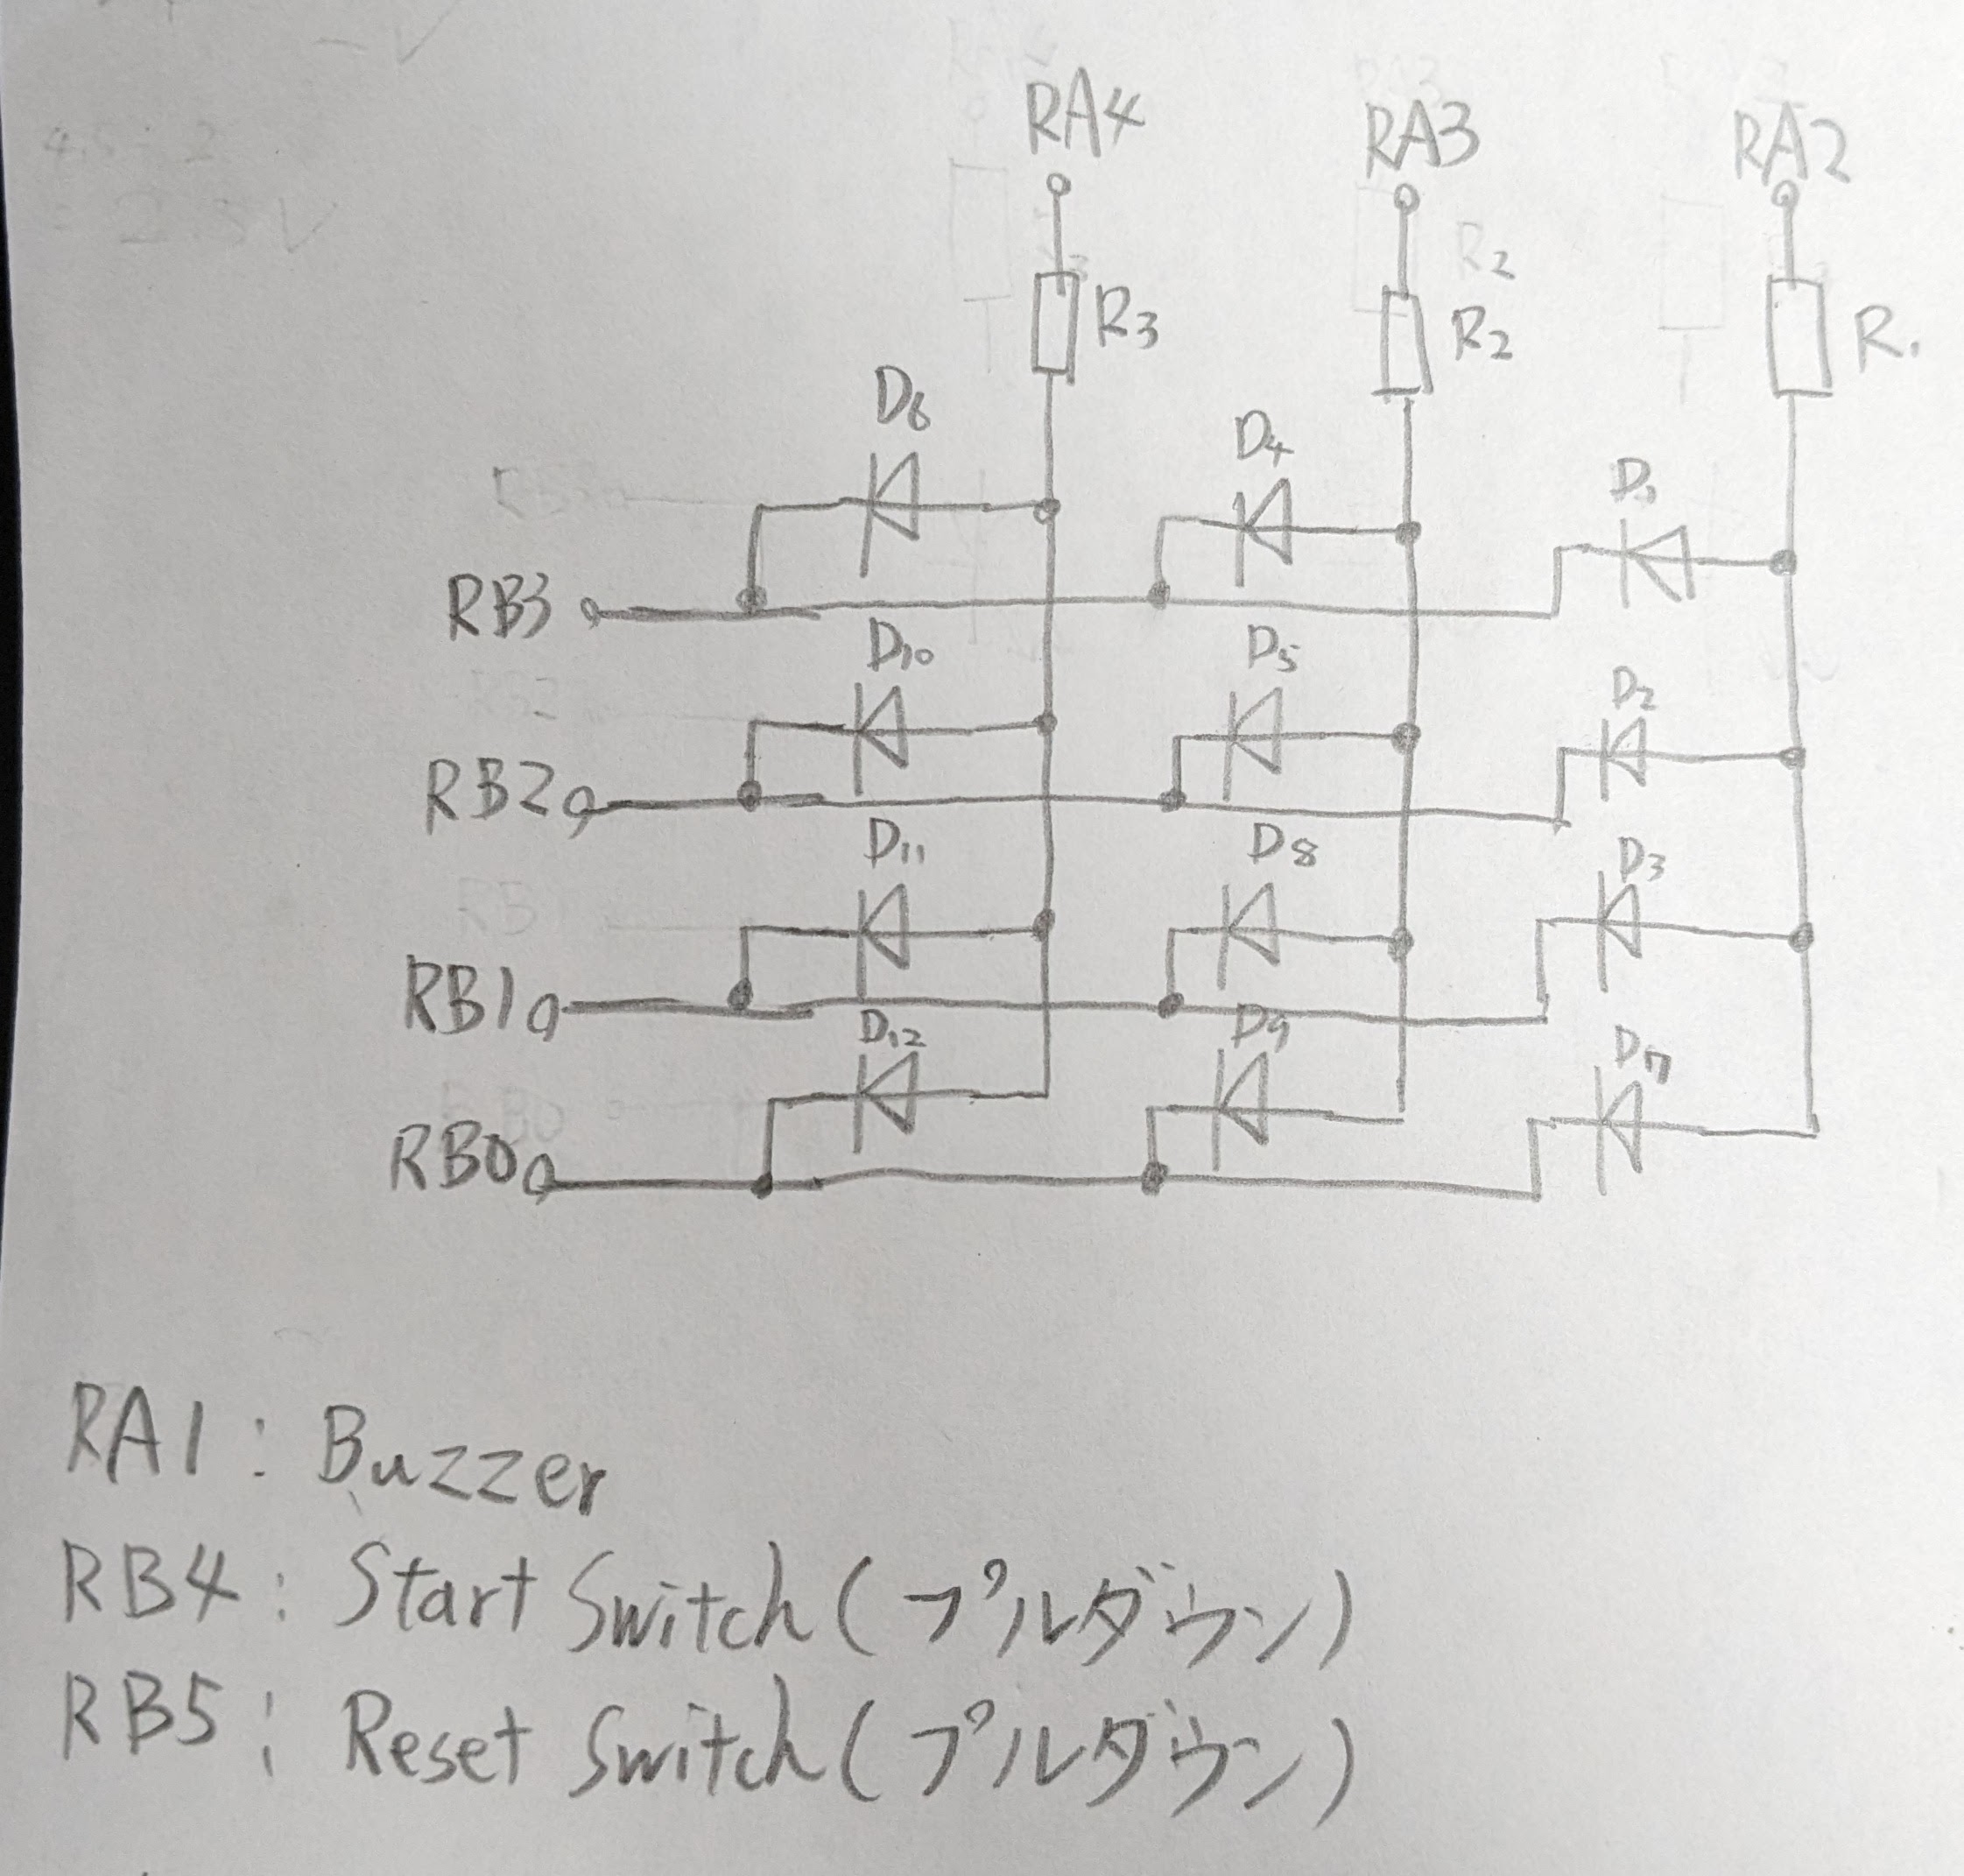 RA4 RA3 RA2
R3 R2 R1
D6 D4 D1
RB3
D10 D5 D2
RB2
D11 D8 D3
RB1
D12 D9 D7
RB0
RA1: Buzzer
RB4: Start Switch (プルダウン)
RB5: Reset Switch (プルダウン)